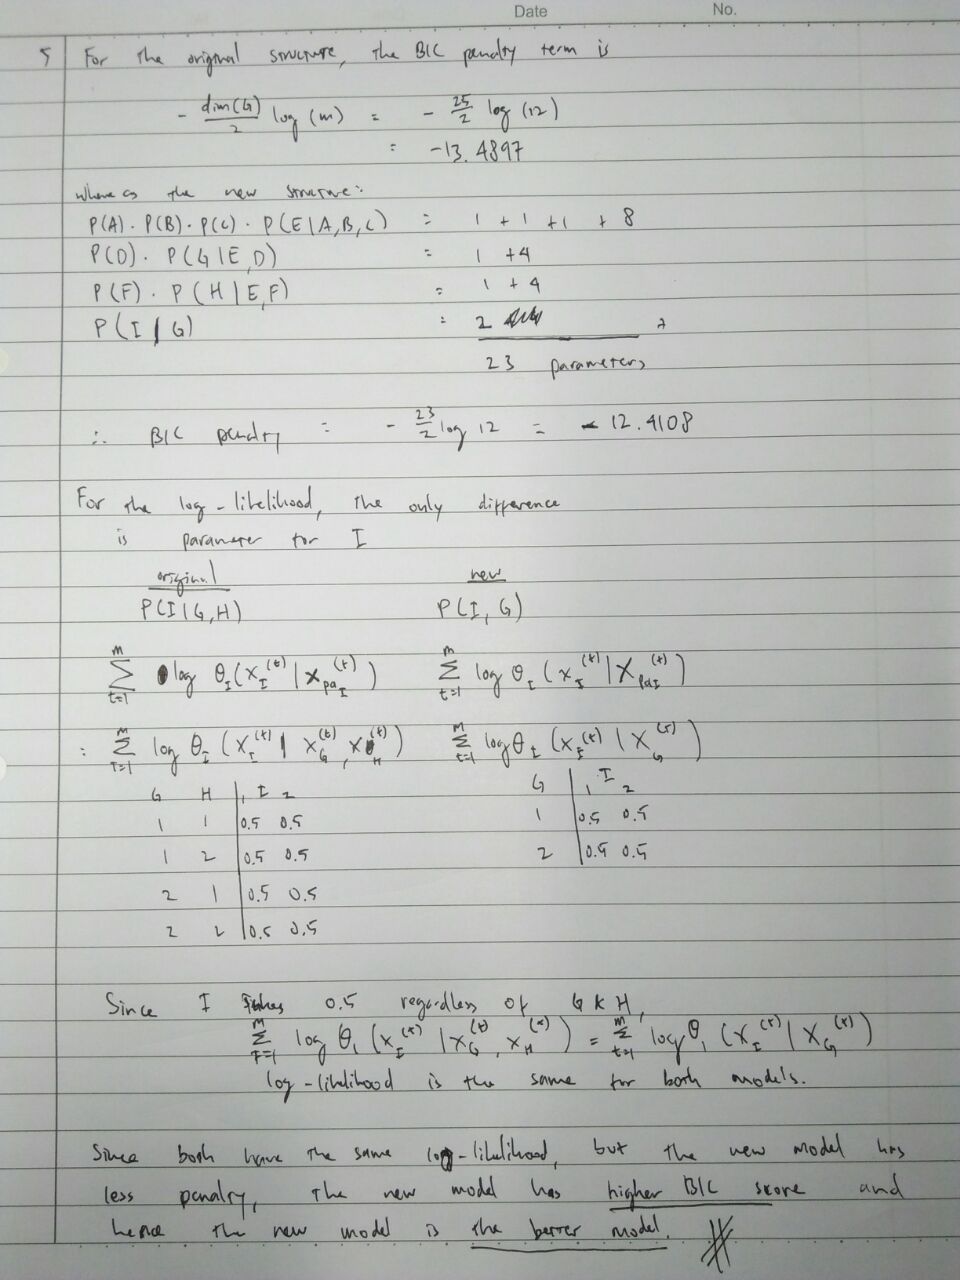 Date No.
5 For the original structure, the BIC penalty term is
- dim(G)/2 log (m) = - 25/2 log (12)
= -13.4897
where as the new structure:
P(A) . P(B) . P(C) . P(E|A,B,C) = 1 + 1 + 1 + 8
P(D) . P(G|E,D) = 1 + 4
P(F) . P(H|E,F) = 1 + 4
P(I|G) = 2 +
23 parameters
∴ BIC penalty = - 23/2 log 12 = - 12.4108
For the log-likelihood, the only difference
is parameter for I
original new
P(I|G,H) P(I,G)
∑_{t=1}^{m} log θ_I (x_I^(t) | x_{pa_I}^(t)) ∑_{t=1}^{m} log θ_I (x_I^(t) | x_{pa_I}^(t))
= ∑_{t=1}^{m} log θ_I (x_I^(t) | x_G^(t), x_H^(t)) ∑_{t=1}^{m} log θ_I (x_I^(t) | x_G^(t))
G H | 1 I 2 G | 1 I 2
1 1 | 0.5 0.5 1 | 0.5 0.5
1 2 | 0.5 0.5 2 | 0.5 0.5
2 1 | 0.5 0.5
2 2 | 0.5 0.5
Since I takes 0.5 regardless of G & H,
∑_{t=1}^{m} log θ_I (x_I^(t) | x_G^(t), x_H^(t)) = ∑_{t=1}^{m} log θ_I (x_I^(t) | x_G^(t))
log-likelihood is the same for both models.
Since both have the same log-likelihood, but the new model has
less penalty, the new model has higher BIC score and
hence the new model is the better model.